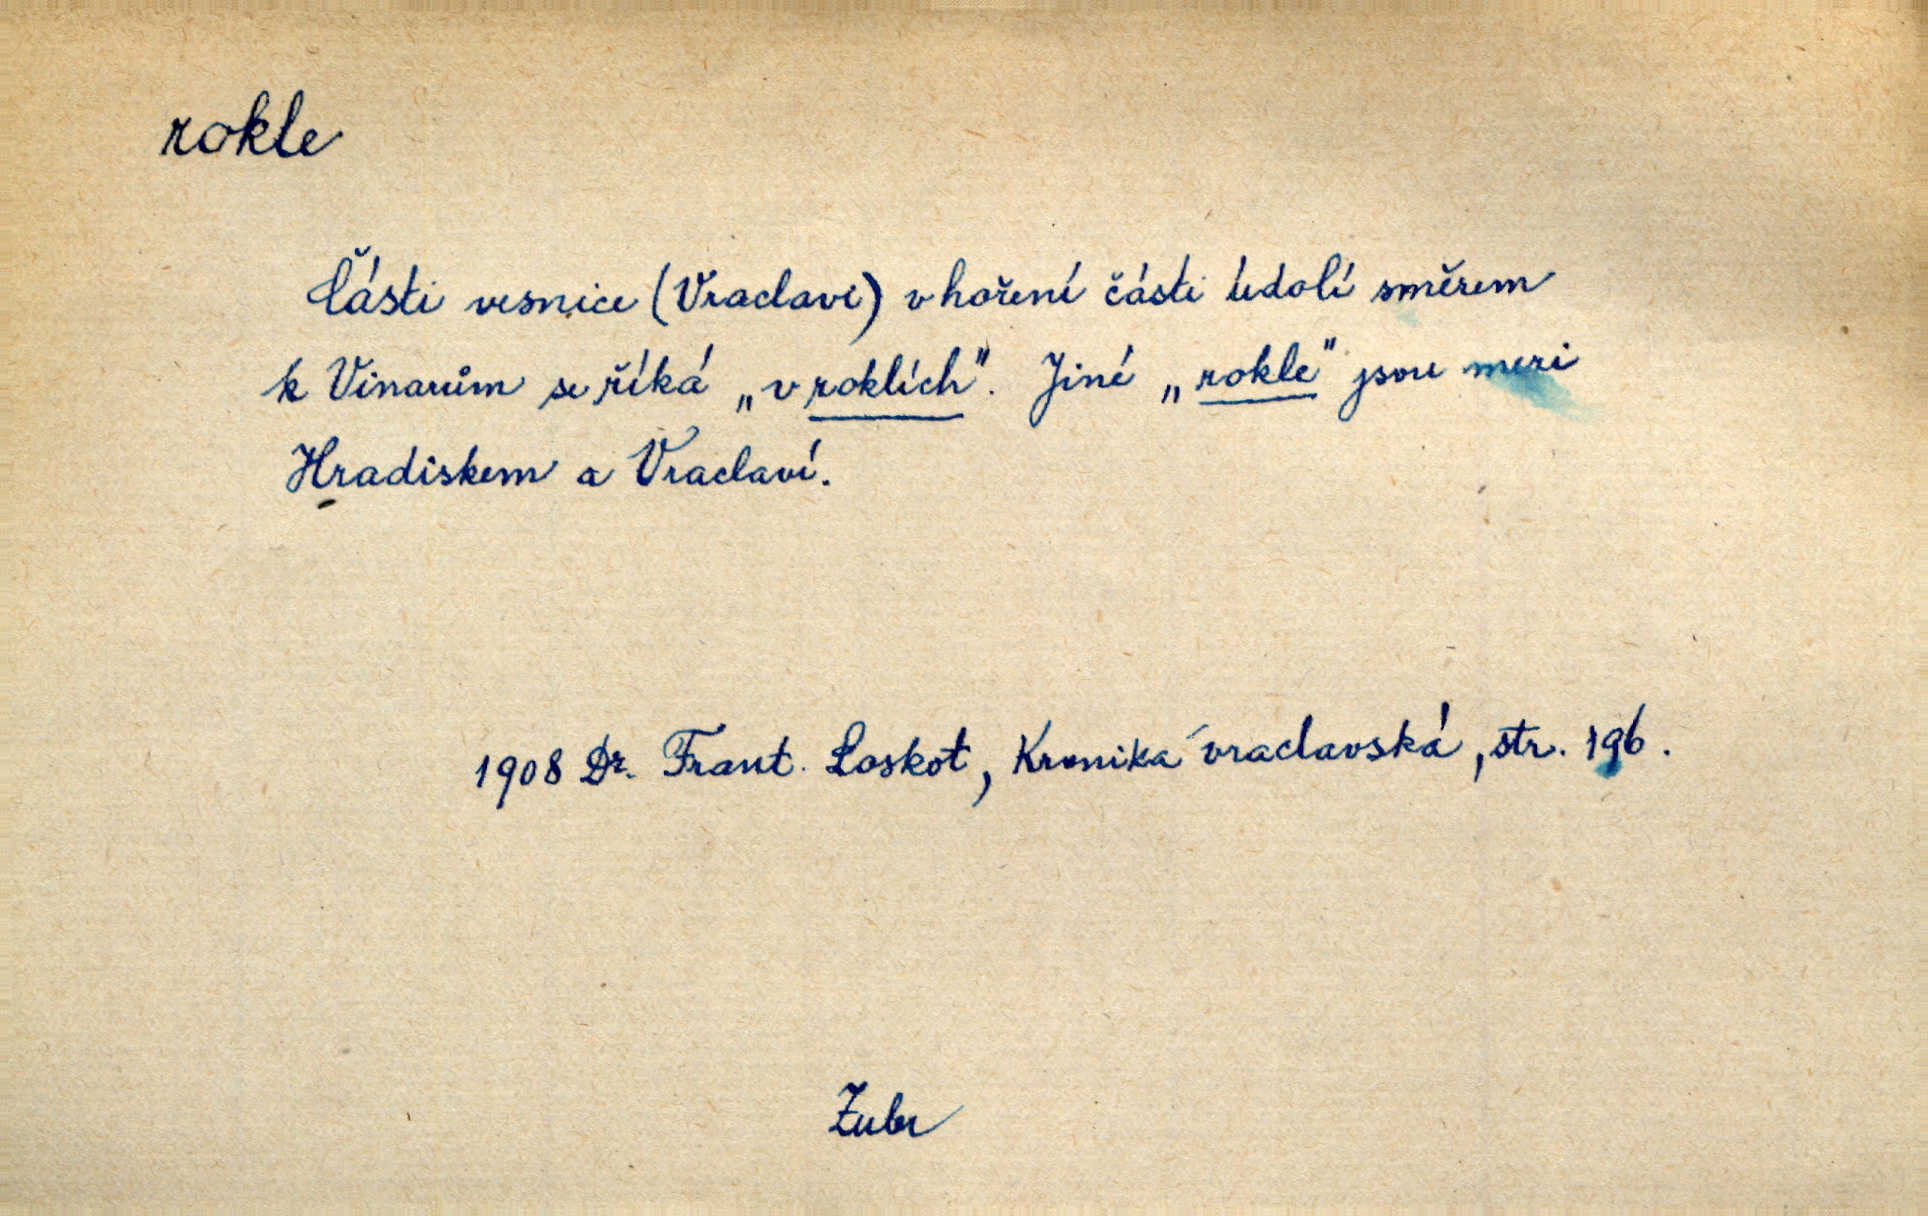 rokle
Části vesnice (Vraclavi) v hoření části údolí směrem
k Vinarům se říká „v roklích". Jiné „rokle" jsou mezi
Hradiskem a Vraclaví.
1908 Dr. Frant. Loskot, Kronika vraclavská, str. 196.
Zubr